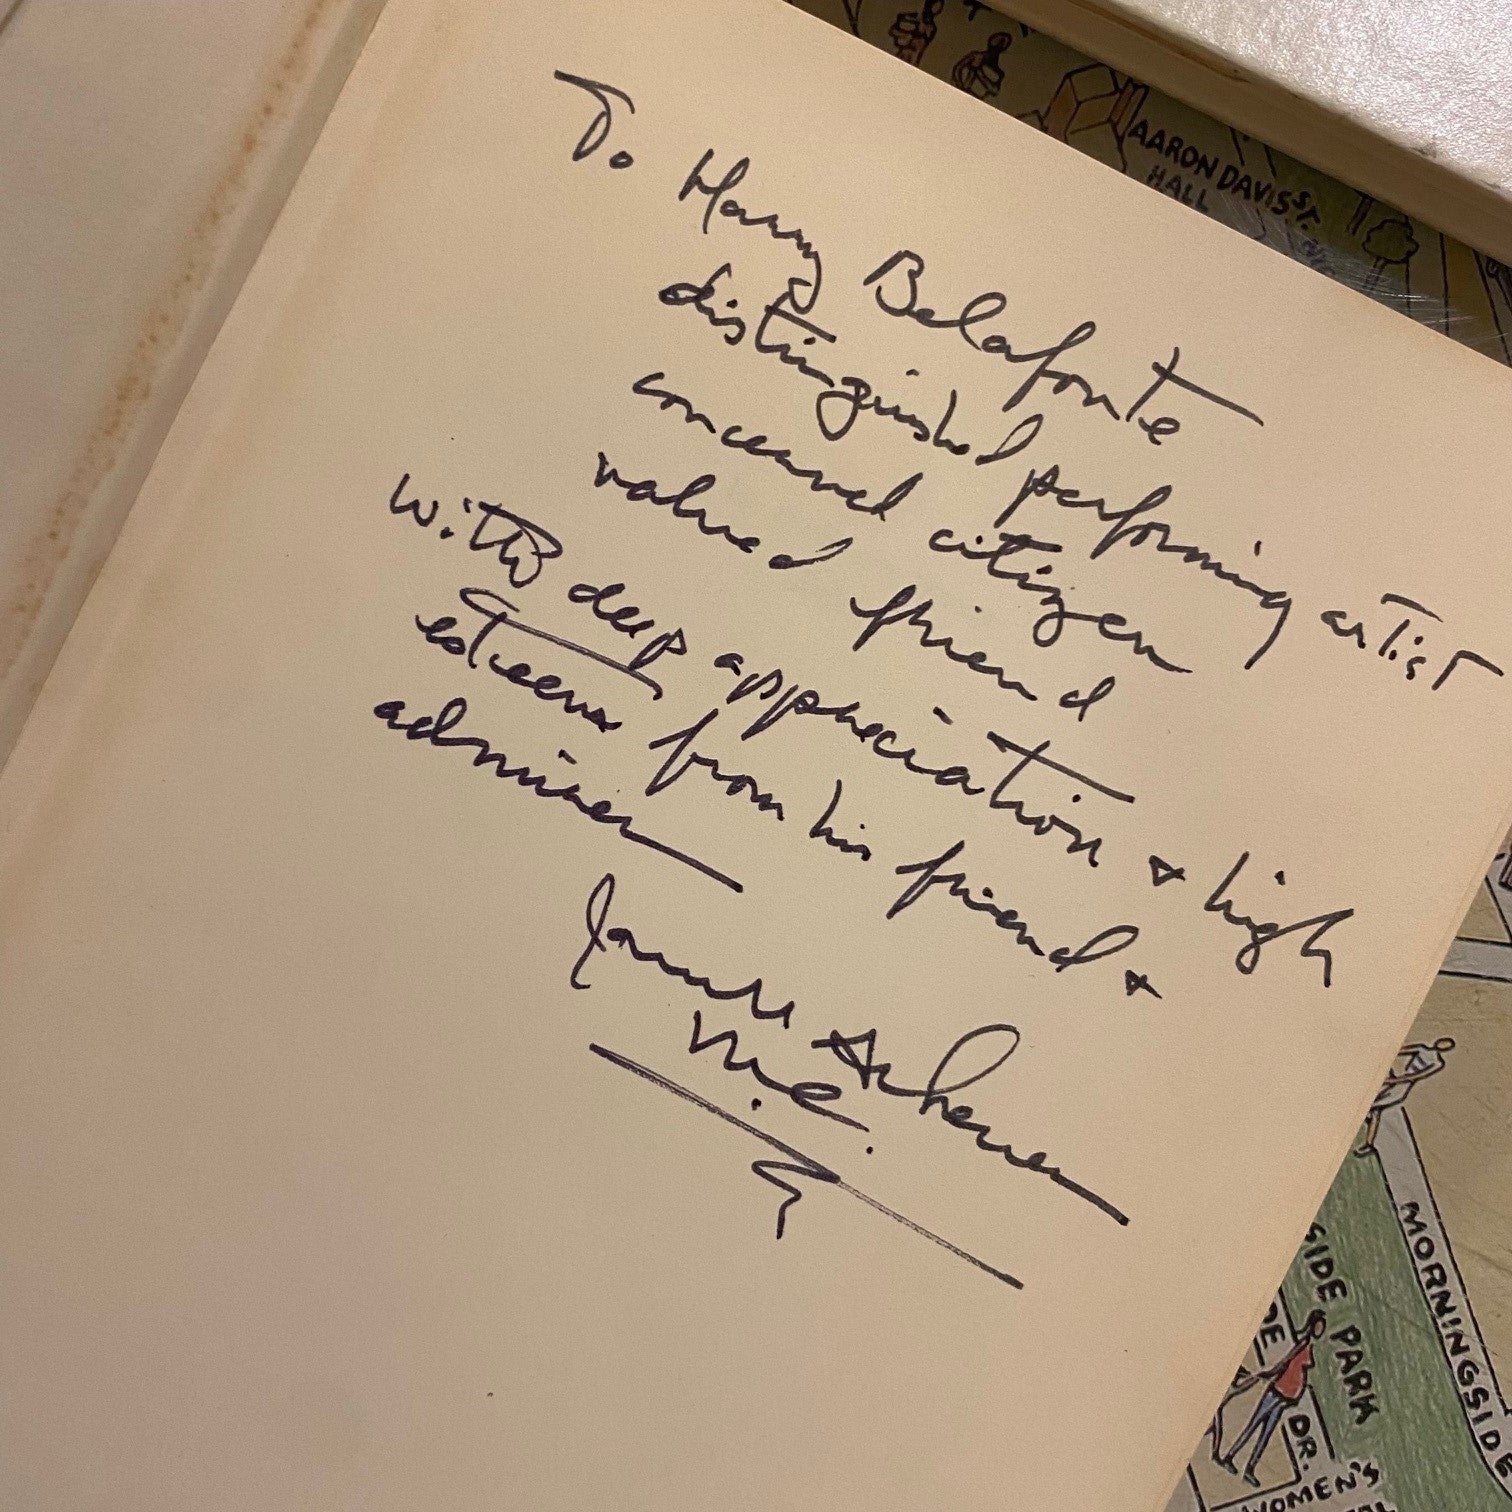 To Harry Belafonte
distinguished performing artist
concerned citizen
valued friend
With deep appreciation + high
esteem from his friend +
admirer
AARON DAVIS
HALL
ST.
SIDE PARK
MORNINGSIDE
DR.
WOMEN'S